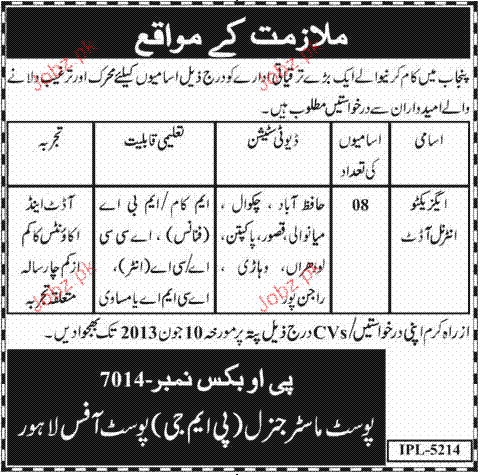 ملازمت کے مواقع
پنجاب میں کام کرنیوالے ایک بڑے ترقیاتی ادارے کو درج ذیل اسامیوں کیلئے محرک اور ترغیب دلانے
والے امیدواران سے درخواستیں مطلوب ہیں۔
اسامی
اسامیوں کی تعداد
ڈیوٹی سٹیشن
تعلیمی قابلیت
تجربہ
ایگزیکٹو
انٹرنل آڈٹ
08
حافظ آباد ، چکوال ،
میانوالی، قصور، پاکپتن،
لودھراں، وہاڑی ،
راجن پور
ایم کام/ ایم بی اے
(فنانس) ، اے سی سی
اے/ سی اے (انٹر)،
اے سی ایم اے یا مساوی
آڈٹ اینڈ
اکاؤنٹس کا کم
از کم چار سالہ
متعلقہ تجربہ
ازراہ کرم اپنی درخواستیں/CVs درج ذیل پتہ پر مورخہ 10 جون 2013 تک بھجوا دیں۔
پی او بکس نمبر-7014
پوسٹ ماسٹر جنرل (پی ایم جی) پوسٹ آفس لاہور
IPL-5214
Jobz.pk
Jobz.pk
Jobz.pk
Jobz.pk